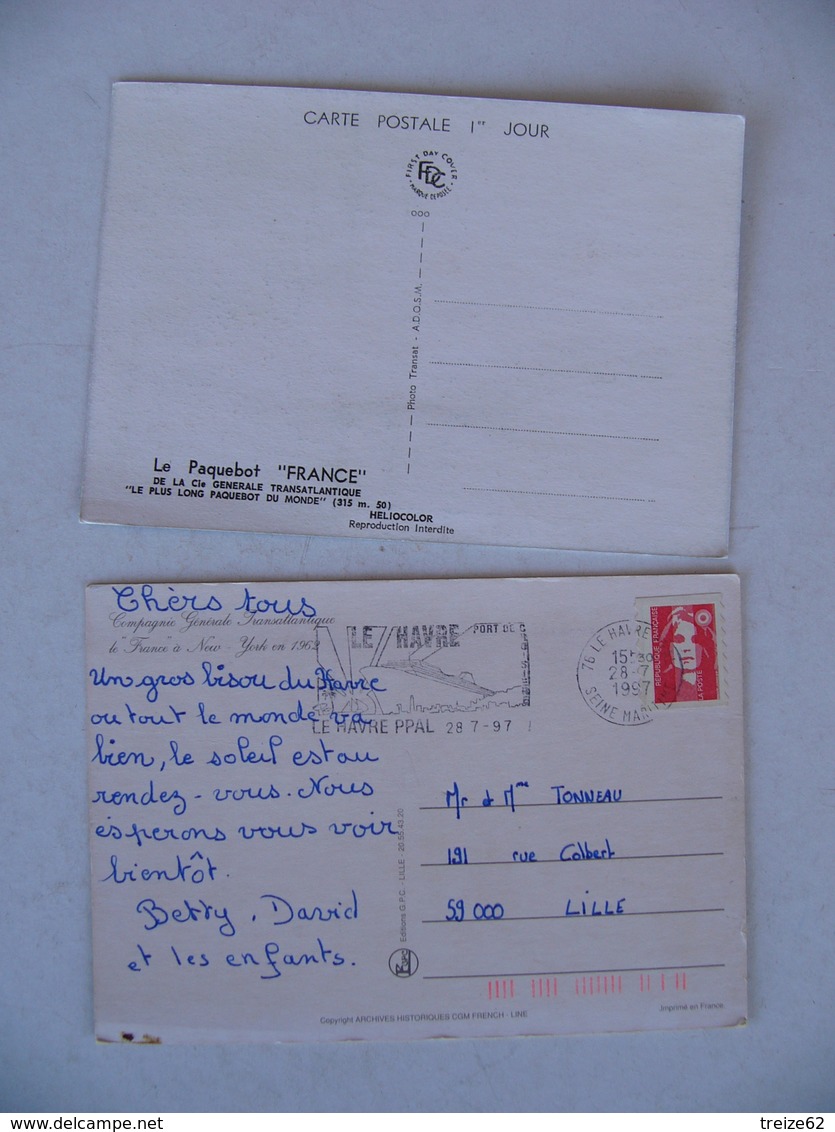 CARTE POSTALE 1er JOUR
FIRST DAY COVER
FDC
MARQUE DEPOSEE
Photo Transat - A.D.Q.S.M.
Le Paquebot "FRANCE"
DE LA Cie GENERALE TRANSATLANTIQUE
"LE PLUS LONG PAQUEBOT DU MONDE" (315 m. 50)
HELIOCOLOR
Reproduction Interdite
Chèrs tous
Compagnie Générale Transatlantique
le "France" à New - York en 1962
Un gros bisou du Havre
ou tout le monde va
bien, le soleil est au
rendez-vous. Nous
ésperons vous voir
bientôt.
Betty, David
et les enfants.
LE HAVRE PORT DE C
LE HAVRE PPAL 28 7-97
76 LE HAVRE
15H30
28-7
1997
SEINE MARIT
REPUBLIQUE FRANÇAISE
LA POSTE
Mr & Mme TONNEAU
191 rue Colbert
59000 LILLE
Editions G.P.C. - LILLE - 20.55.43.20
Copyright ARCHIVES HISTORIQUES COM FRENCH - LINE
Imprimé en France
delcampe.net
treize62